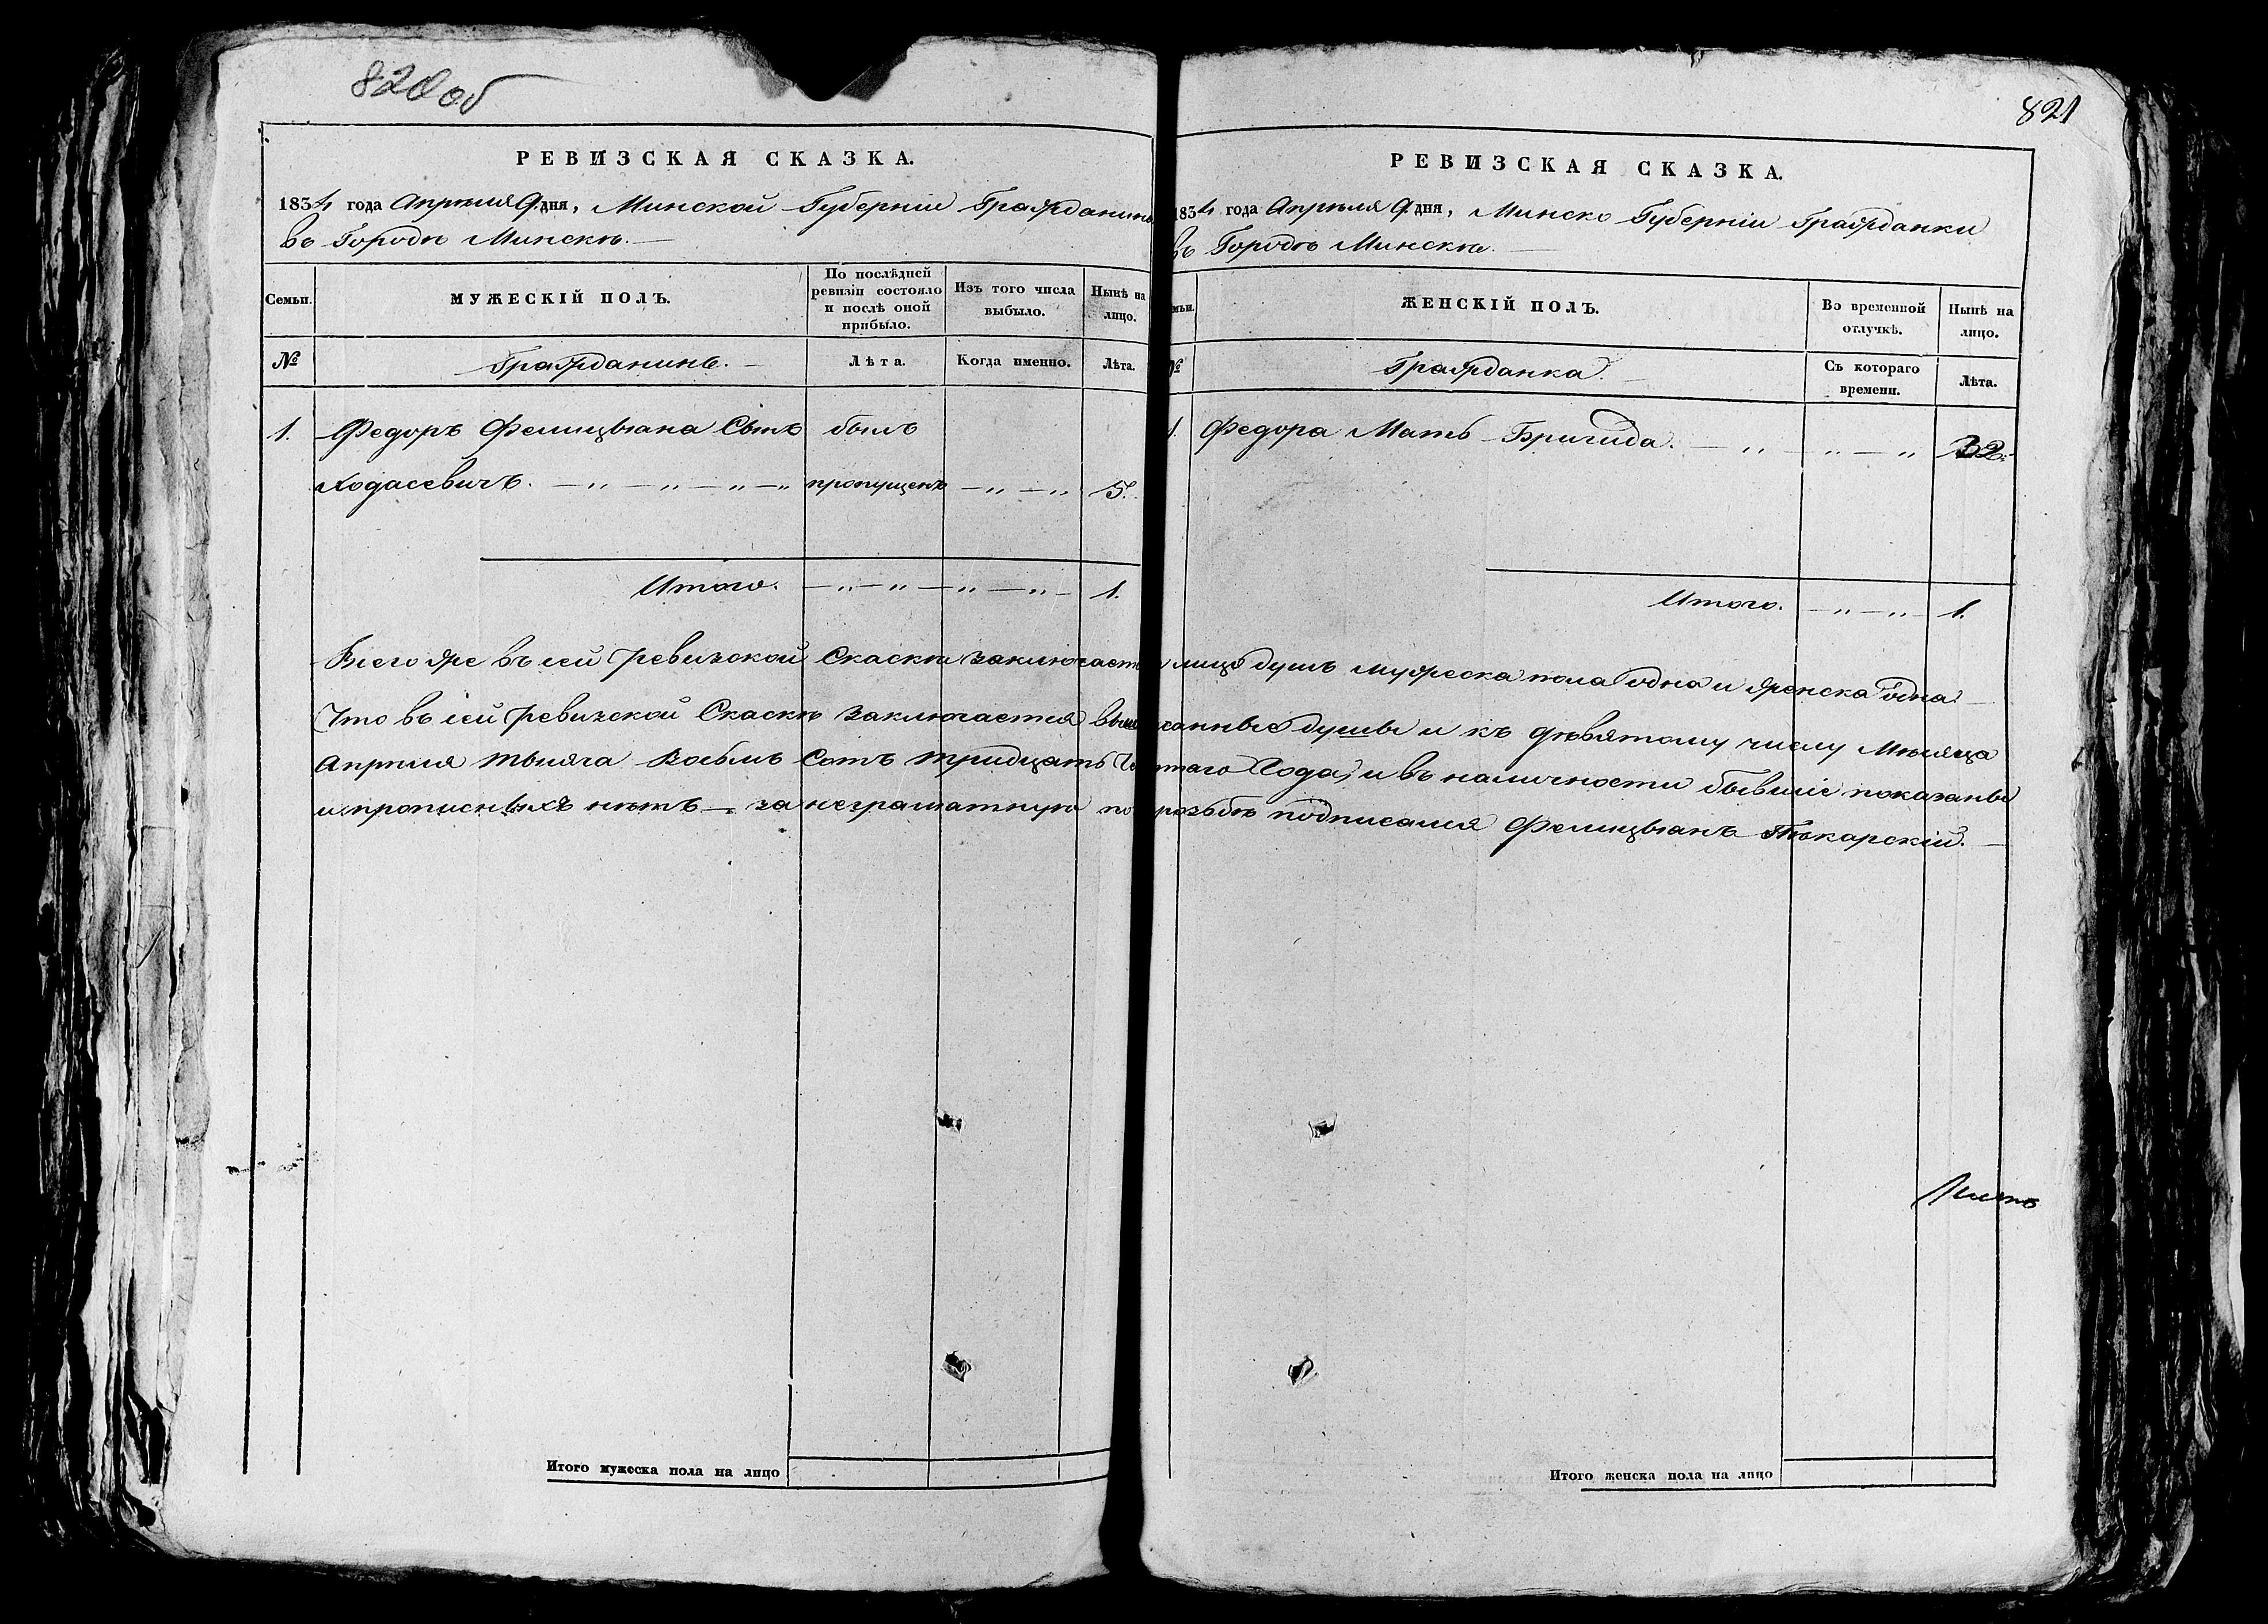 820 об
РЕВИЗСКАЯ СКАЗКА.
1834 года Апреля 9. дня, Минской Губерніи Гражданинъ
въ Городѣ Минскѣ.
Семьи.
МУЖЕСКІЙ ПОЛЪ.
По послѣдней ревизіи состояло и послѣ оной прибыло.
Изъ того числа выбыло.
Нынѣ на лицо.
№
Гражданинъ.
Лѣта.
Когда именно.
Лѣта.
1. Федоръ Фелиціяна Сынъ былъ
Ходасевичъ. — „ — „ — „ — „ пропущенъ — „ — „ 5.
Итого. — „ — „ — „ — „ — 1.
821
РЕВИЗСКАЯ СКАЗКА.
1834 года Апреля 9. дня, Минско Губерніи Гражданки
въ Городѣ Минскѣ.
ЖЕНСКІЙ ПОЛЪ.
Во временной отлучкѣ.
Нынѣ на лицо.
№
Гражданка.
Съ котораго времени.
Лѣта.
1. Федора Мать Бригида. — „ — „ — „ 32.
Итого. — „ — „ — 1.
Всего же въ сей ревизской Скаски заключается лицо душъ мужеска пола одна и женска одна
Что въ сей ревизской Скаскѣ заключается души и къ девятому числу Мѣсяца
Апреля тысяча восьмъ Сотъ тридцать Года, и въ наличности бывшіе показаны
и прописныхъ нѣтъ — за неграматную по прозьбѣ подписался Фелиціянъ Пекарскій.
Листъ
Итого мужеска пола на лицо
Итого женска пола на лицо